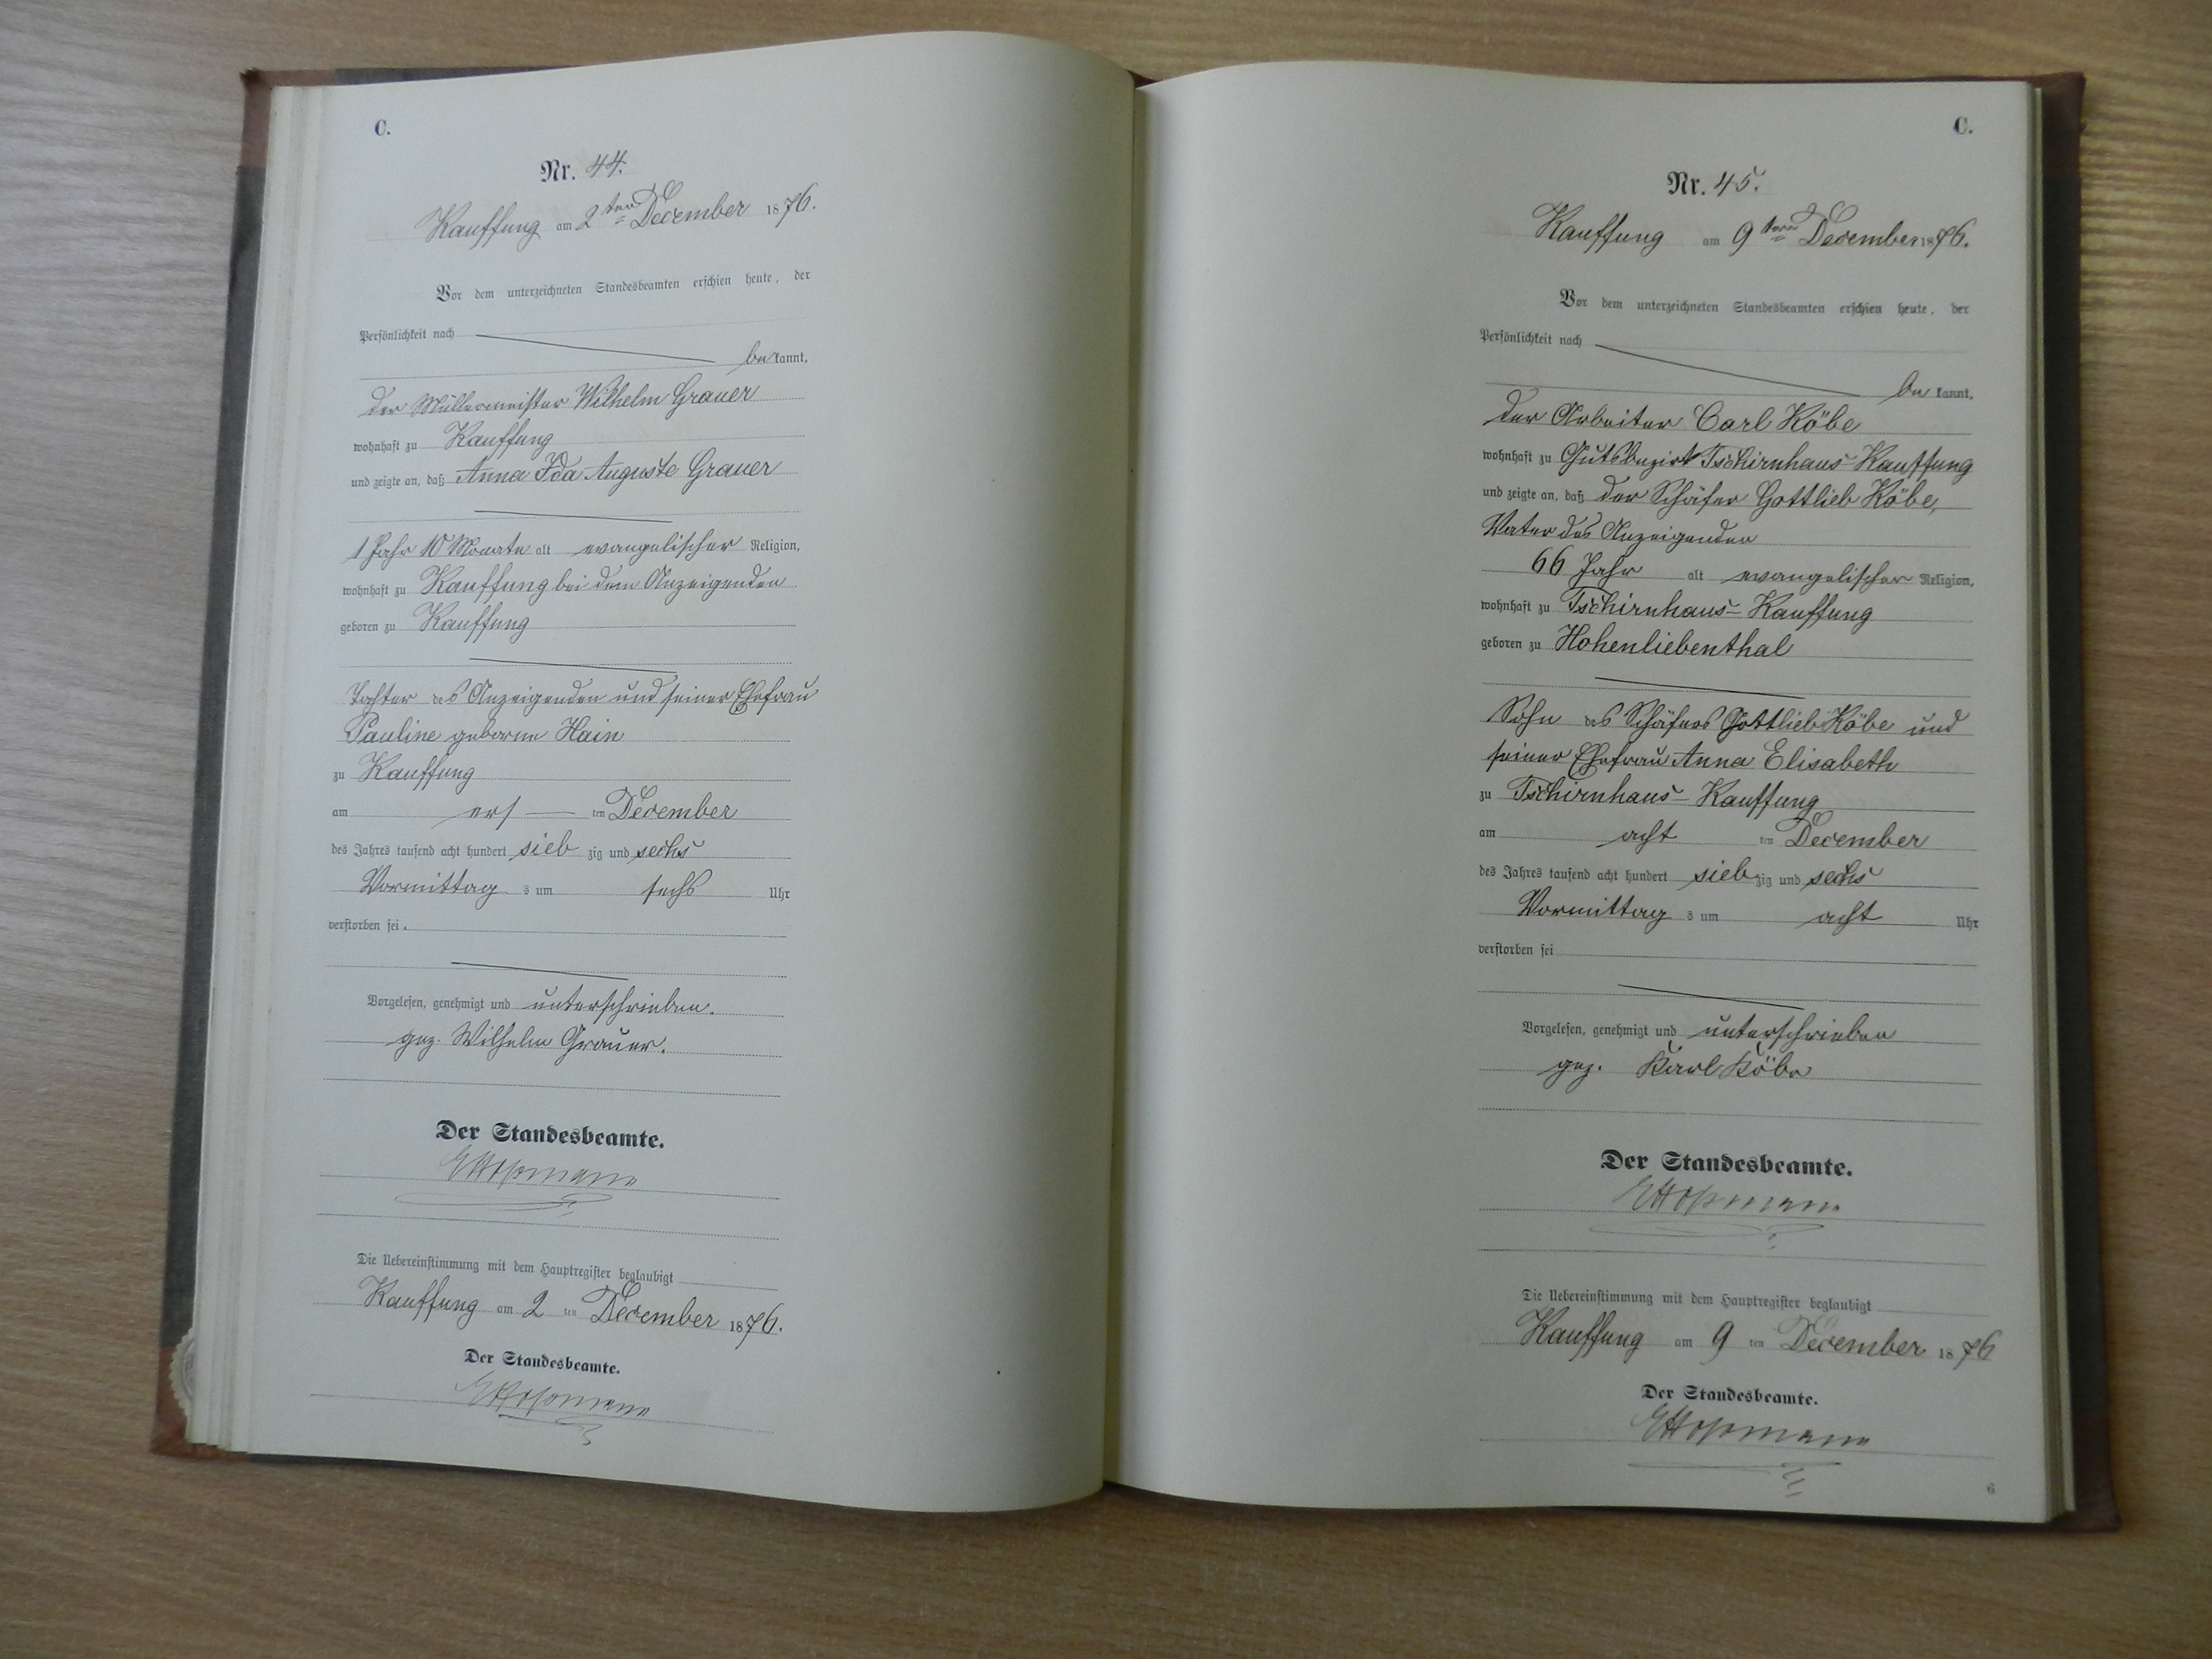 C.
Nr. 44.
Kauffung am 2ten December 1876.
Vor dem unterzeichneten Standesbeamten erschien heute, der
Persönlichkeit nach
bekannt,
der Müllermeister Wilhelm Grauer
wohnhaft zu Kauffung
und zeigte an, daß Anna Ida Auguste Grauer
1 Jahr 10 Monate alt evangelischer Religion,
wohnhaft zu Kauffung bei dem Anzeigenden
geboren zu Kauffung
Tochter des Anzeigenden und seiner Ehefrau
Pauline geborne Hain
zu Kauffung
am ers ten December
des Jahres tausend acht hundert sieb zig und sechs
Vormittag s um sechs Uhr
verstorben sei.
Vorgelesen, genehmigt und unterschrieben.
gez. Wilhelm Grauer.
Der Standesbeamte.
Die Uebereinstimmung mit dem Hauptregister beglaubigt
Kauffung am 2 ten December 1876.
Der Standesbeamte.
C.
Nr. 45.
Kauffung am 9ten December 1876.
Vor dem unterzeichneten Standesbeamten erschien heute, der
Persönlichkeit nach
bekannt,
der Arbeiter Carl Köbe
wohnhaft zu Gutsbezirk Tschirnhaus-Kauffung
und zeigte an, daß der Schäfer Gottlieb Köbe,
Vater des Anzeigenden
66 Jahr alt evangelischer Religion,
wohnhaft zu Tschirnhaus-Kauffung
geboren zu Hohenliebenthal
Sohn des Schäfers Gottlieb Köbe und
seiner Ehefrau Anna Elisabeth
zu Tschirnhaus-Kauffung
am acht ten December
des Jahres tausend acht hundert sieb zig und sechs
Vormittag s um acht Uhr
verstorben sei
Vorgelesen, genehmigt und unterschrieben
gez. Karl Köbe
Der Standesbeamte.
Die Uebereinstimmung mit dem Hauptregister beglaubigt
Kauffung am 9 ten December 1876
Der Standesbeamte.
6